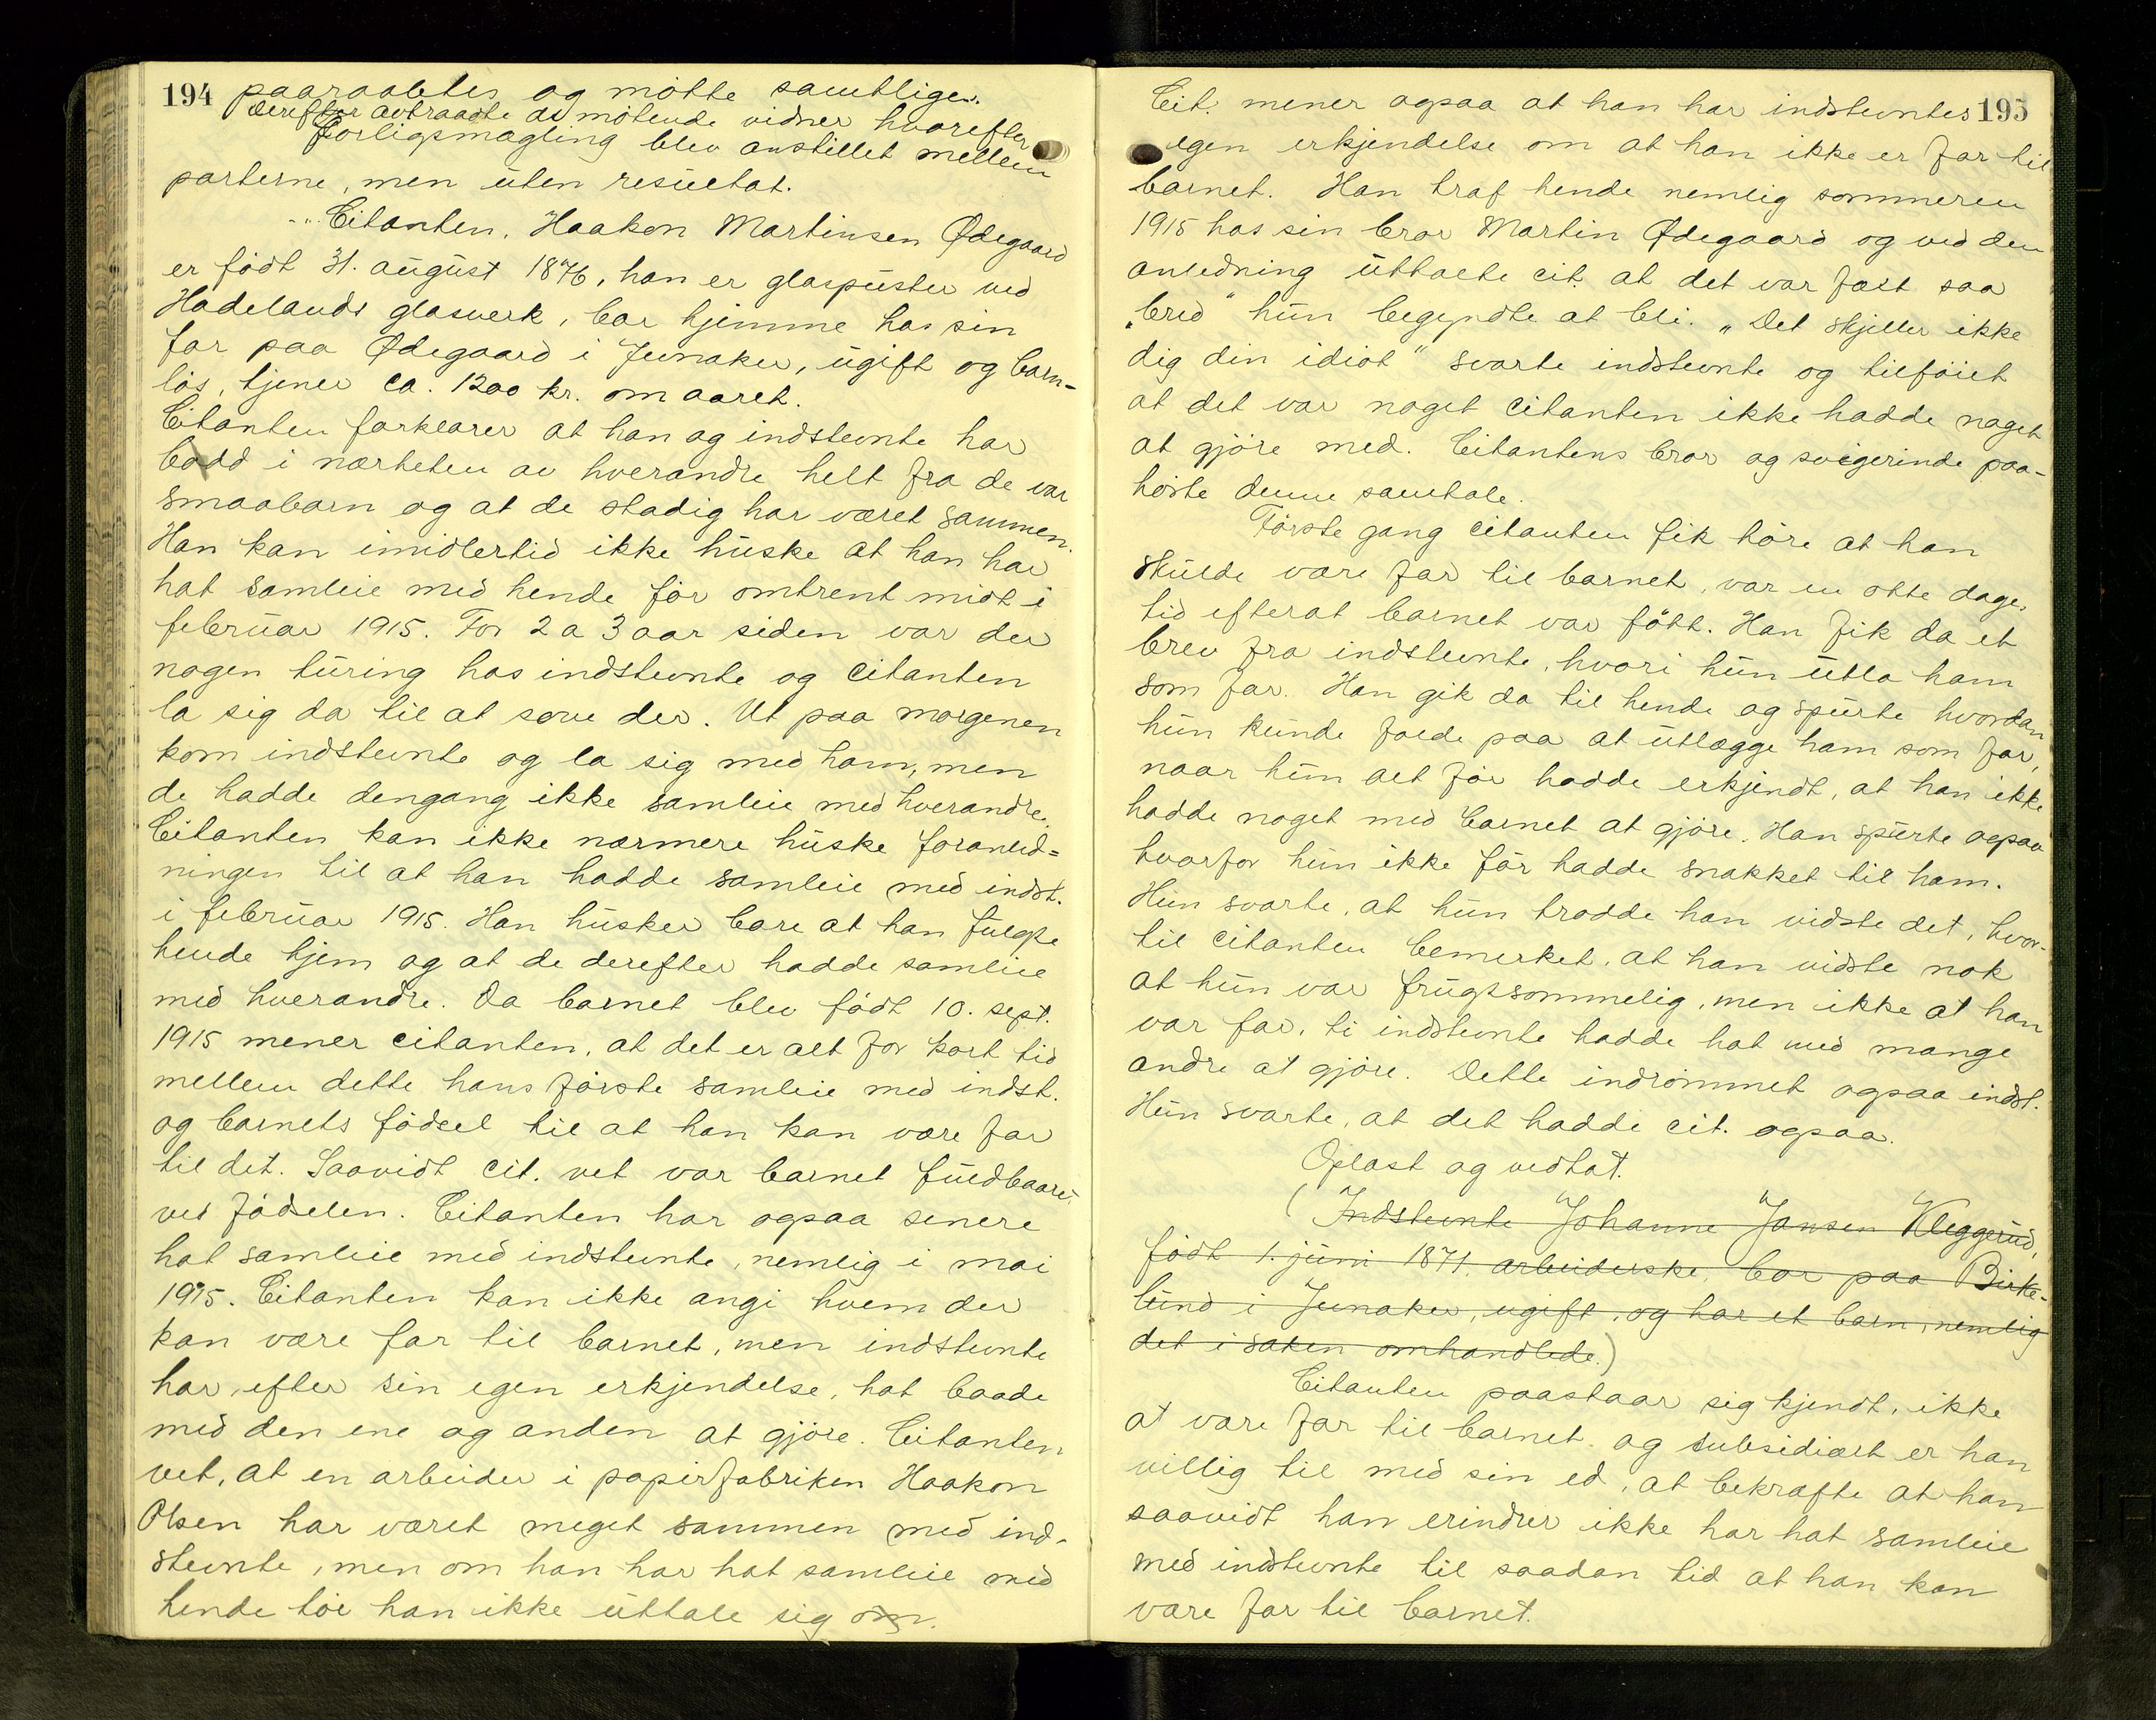 194
paaraabtes og mötte samtlige.
Derefter avtraadte de mötende vidner hvorefter
Forligsmægling blev anstillet mellem
parterne, men uten resultat.
Citanten, Haakon Martinsen Ødegaard
er födt 31. august 1876, han er glaspuster ved
Hadelands glasverk, bor hjemme hos sin
far paa Ødegaard i Jevnaker, ugift og barn-
lös, tjener ca. 1200 kr. om aaret.
Citanten forklarer at han og indstevnte har
bodd i nærheten av hverandre helt fra de var
smaabarn og at de stadig har været sammen.
Han kan imidlertid ikke huske at han har
hat samleie med hende för omtrent midt i
februar 1915. For 2 a 3 aar siden var der
nogen turing hos indstevnte og citanten
la sig da til at sove der. Ut paa morgenen
kom indstevnte og la sig med ham, men
de hadde dengang ikke samleie med hverandre.
Citanten kan ikke nærmere huske foranled-
ningen til at han hadde samleie med indst.
i februar 1915. Han husker bare at han fulgte
hende hjem og at de derefter hadde samleie
med hverandre. Da barnet blev födt 10. sept.
1915 mener citanten, at det er alt for kort tid
mellem dette hans förste samleie med indst.
og barnets födsel til at han kan være far
til det. Saavidt cit. vet var barnet fuldbaaret
ved födselen. Citanten har ogsaa senere
hat samleie med indstevnte, nemlig i mai
1915. Citanten kan ikke angi hvem der
kan være far til barnet, men indstevnte
har, efter sin egen erkjendelse, hat baade
med den ene og anden at gjöre. Citanten
vet, at en arbeider i papirfabriken Haakon
Olsen har været meget sammen med ind-
stevnte, men om han har hat samleie med
hende tör han ikke uttale sig om.
195
Cit. mener ogsaa at han har indstevntes
egen erkjendelse om at han ikke er far til
barnet. Han traf hende nemlig sommeren
1915 hos sin bror Martin Ødegaard og ved den
anledning uttalte cit. at det var fælt saa
„bred" hun begyndte at bli. „Det skjeller ikke
dig din idiot" svarte indstevnte og tilföiet
at det var noget citanten ikke hadde noget
at gjöre med. Citantens bror og svigerinde paa-
hörte denne samtale.
Förste gang citanten fik höre at han
skulde være far til barnet, var en otte dages
tid efterat barnet var född. Han fik da et
brev fra indstevnte, hvori hun utla ham
som far. Han gik da til hende og spurte hvordan
hun kunde falde paa at utlægge ham som far,
naar hun alt för hadde erkjendt, at han ikke
hadde noget med barnet at gjöre. Han spurte ogsaa
hvorfor hun ikke för hadde snakket til ham.
Hun svarte, at hun trodde han vidste det, hvor-
til citanten bemerket, at han vidste nok
at hun var frugtsommelig, men ikke at han
var far, ti indstevnte hadde hat med mange
andre at gjöre. Dette indrömmet ogsaa indst.
Hun svarte, at det hadde cit. ogsaa.
Oplæst og vedtat.
(Indstevnte Johanne Jansen Kleggerud,
födt 1. juni 1871, arbeiderske, bor paa Birke-
lund i Jevnaker, ugift, og har et barn, nemlig
det i saken omhandlede.)
Citanten paastaar sig kjendt, ikke
at være far til barnet og subsidiært er han
villig til med sin ed, at bekræfte at han
saavidt han erindrer ikke har hat samleie
med indstevnte til saadan tid at han kan
være far til barnet.